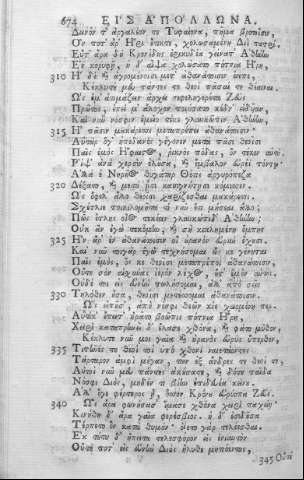 674 ΕΙΣ ἈΠΟΛΛΩΝΑ.
Δεινόν τ' ἀργαλέον τε Τυφάονα, πῆμα βροτοῖσιν,
Ὅν ποτ' ἄρ' Ἥρη ἔτικτε, χολωσαμένη Διὶ πατρί.
Εὖτ' ἄρα δὴ Κρονίδης ἐρικυδέα γείνατ' Ἀθήνην
Ἐν κορυφῇ, ἡ δ' αἶψα χολώσατο πότνια Ἥρη,
310 Ἠδὲ καὶ ἀγρομένοισι μετ' ἀθανάτοισιν ἔειπε,
Κέκλυτέ μευ πάντες τε θεοὶ πᾶσαί τε θέαιναι,
Ὡς ἔμ' ἀτιμάζειν ἄρχει νεφεληγερέτα Ζεὺς
Πρῶτος, ἐπεί μ' ἄλοχον ποιήσατο κέδν' εἰδυῖαν
Καὶ νῦν νόσφιν ἐμεῖο τέκε γλαυκῶπιν Ἀθήνην,
315 Ἣ πᾶσιν μακάρεσσι μεταπρέπει ἀθανάτοισιν·
Αὐτὰρ ὅγ' ἠπεδανὸς γέγονεν μετὰ πᾶσι θεοῖσι
Παῖς ἐμὸς Ἥφαιστος, ῥικνὸς πόδας, ὃν τέκον αὐτὴ
Ῥίψ' ἀνὰ χερσὶν ἑλοῦσα, καὶ ἔμβαλον εὐρέϊ πόντῳ·
Ἀλλὰ ἑ Νηρῆος θυγάτηρ Θέτις ἀργυρόπεζα
320 Δέξατο, καὶ μετὰ ᾗσι κασιγνήτῃσι κόμισσεν.
Ὡς ὄφελ' ἄλλο θεοῖσι χαρίζεσθαι μακάρεσσι.
Σχέτλιε ποικιλομῆτα τί νῦν ἔτι μήσεαι ἄλλο;
Πῶς ἔτλης οἶος τεκέειν γλαυκώπιδ' Ἀθήνην;
Οὐκ ἂν ἐγὼ τεκόμην, καὶ σὴ κεκλημένη ἔμπης
325 Ἦν ἄρ' ἐν ἀθανάτοισιν οἳ οὐρανὸν εὐρὺν ἔχουσι.
Καὶ νῦν τοιγὰρ ἐγὼ τεχνήσομαι ὥς κε γένηται
Παῖς ἐμὸς, ὅς κε θεοῖσι μεταπρέποι ἀθανάτοισιν,
Οὔτε σὸν αἰσχύνας ἱερὸν λέχος, οὔτ' ἐμὸν αὐτῆς.
Οὐδέ τοι εἰς εὐνὴν πωλήσομαι, ἀλλ' ἀπὸ σεῖο
330 Τηλόθεν οὖσα, θεοῖσι μετέσσομαι ἀθανάτοισιν.
Ὣς εἰποῦσ', ἀπὸ νόσφι θεῶν κίε χωομένη περ.
Αὐτίκ' ἔπειτ' ἠρᾶτο βοῶπις πότνια Ἥρη,
Χειρὶ καταπρηνεῖ δ' ἔλασε χθόνα, καὶ φάτο μῦθον,
Κέκλυτε νῦν μοι γαῖα καὶ οὐρανὸς εὐρὺς ὕπερθεν,
335 Τιτῆνές τε θεοὶ τοὶ ὑπὸ χθονὶ ναιετάοντες
Τάρταρον ἀμφὶ μέγαν, τῶν ἒξ ἄνδρες τε θεοί τε,
Αὐτοὶ νῦν μευ πάντες ἀκούσατε, καὶ δότε παῖδα
Νόσφι Διὸς, μηδέν τι βίην ἐπιδευέα κείνου·
Ἀλλ' ὅγε φέρτερος ᾖ, ὅσσον Κρόνου εὐρύοπα Ζεύς.
340 Ὣς ἄρα φωνήσασ' ἵμασε χθόνα χειρὶ παχείῃ·
Κινήθη δ' ἄρα γαῖα φερέσβιος· ἡ δ' ἐσιδοῦσα
Τέρπετο ὃν κατὰ θυμόν· ὀΐετο γὰρ τελέεσθαι.
Ἐκ τούτου δ' ἤπειτα τελεσφόρον εἰς ἐνιαυτὸν
Οὔτε ποτ' εἰς εὐνὴν Διὸς ἤλυθε μητιόεντος,
345 Οὔτέ